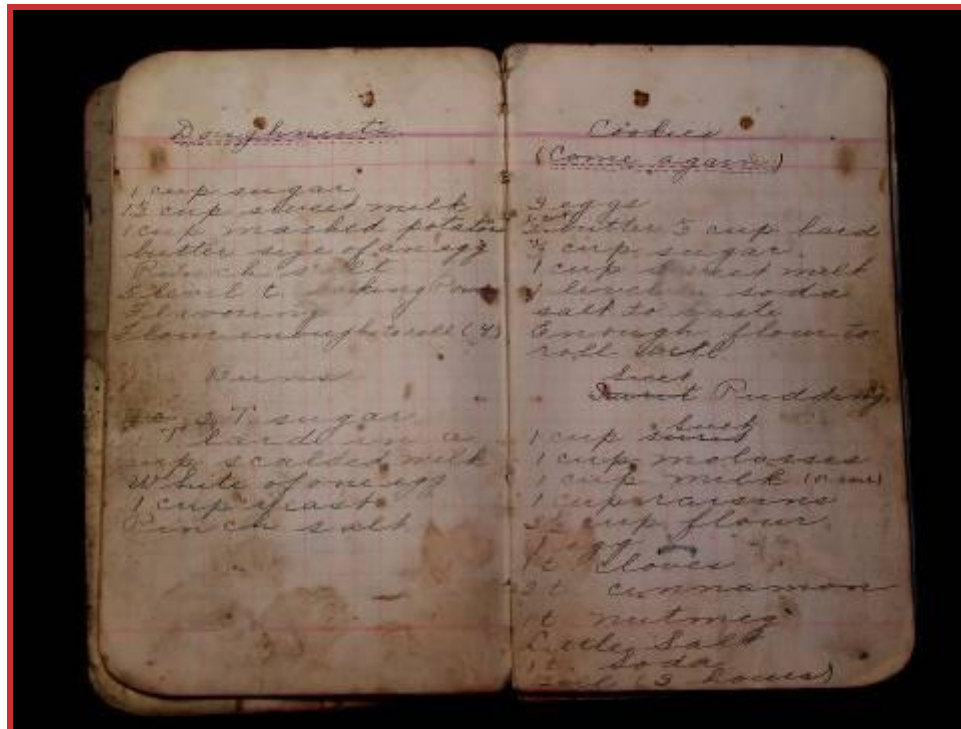 Doughnuts
1 cup sugar
cup sweet milk
1 cup mashed potatoes
butter size of an egg
Pinch salt
5 level t. Baking Pow
Flavoring
Flour enough to roll (4)
Buns
2 T. sugar
1 T lard in a
cup scalded milk
White of one egg
1 cup yeast
Pinch salt
Cookies
(Come again)
eggs
butter cup lard
cup sugar
1 cup sweet milk
1 level soda
salt to taste
Enough flour to
roll well
Suet
Pudding
Suet
1 cup
1 cup molasses
1 cup milk
1 cup raisins
cup flour
Cloves
cinnamon
1 t nutmeg
Little Salt
1 t. Soda
(3 hours)